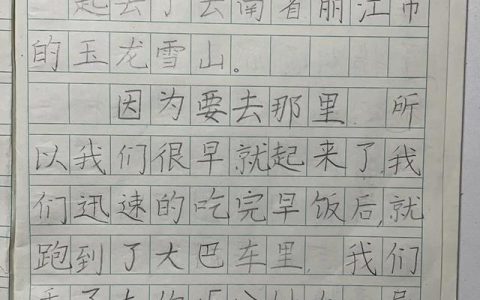 起去了云南省丽江市
的玉龙雪山。
因为要去那里,所
以我们很早就起来了,我
们迅速的吃完早饭后,就
跑到了大巴车里,我们